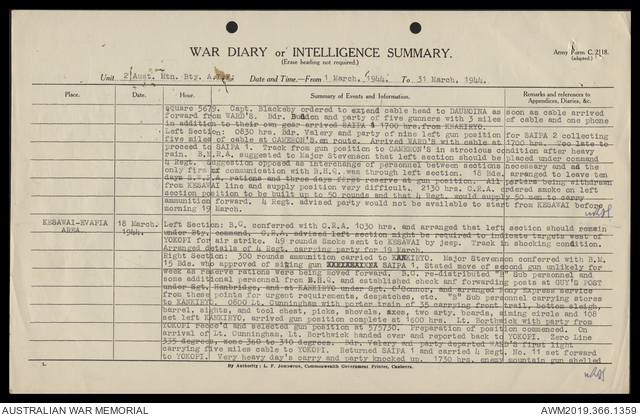 WAR DIARY or INTELLIGENCE SUMMARY.
(Erase heading not required.)
Army Form C. 2118.
(adapted.)
Unit 2 Aust. Mtn. Bty. A.I.F. Date and Time—From 1 March, 1944. To 31 March, 1944.
Place. Date/Hour. Summary of Events and Information. Remarks and references to Appendices, Diaries, &c.
square 5679. Capt. Blackeby ordered to extend cable head to DAUMOINA as soon as cable arrived
forward from WARD'S. Bdr. Budden and party of five gunners with 3 miles of cable and one phone
in addition to their own gear arrived SAIPA 1 1700 hrs. from KESAWAI.
Left Section: 0830 hrs. Bdr. Valery and party of nine left gun position for SAIPA 2 collecting
five miles of cable at CAMERON'S en route. Arrived WARD'S with cable at 1700 hrs. Too late to
proceed to SAIPA 1. Track from gun position to CAMERON'S in atrocious condition after heavy
rain. B.M.R.A. suggested to Major Stevenson that left section should be placed under command
4 Regt. Suggestion opposed as interchange of personnel between sections necessary and as the
only firm communication with B.H.Q. was through left section. 18 Bde. arranged to leave ten
days rations and three days first reserve at gun position. All porters being withdrawn
from KESAWAI line and supply position very difficult. 2130 hrs. C.R.A. ordered smoke on left
section position to be built up to 50 rounds and that 4 Regt. would supply 50 men to carry
ammunition forward. 4 Regt. advised party would not be available to start from KESAWAI before
morning 19 March.
KESAWAI-EVAPIA
AREA
18 March.
1944.
Left Section: B.C. conferred with C.R.A. 1030 hrs. and arranged that left section should remain
under Bty. command. C.R.A. advised left section might be required to indicate targets west of
YOKOPI for air strike. 49 rounds Smoke sent to KESAWAI by jeep. Track in shocking condition.
Arranged details of 4 Regt. carrying party for 19 March.
Right Section: 300 rounds ammunition carried to KANKIRYO. Major Stevenson conferred with B.M.
15 Bde. who approved of siting gun SAIPA 1. Stated move of second gun unlikely for
week as reserve rations were being moved forward. B.C. re-distributed "B" Sub personnel and
some additional personnel from B.H.Q. and established check and forwarding posts at GUY'S POST
under Sgt. Hambridge, and at KANKIRYO under Sgt. O'Connor, and arranged Pony Express service
from these points for urgent requirements, despatches, etc. "B" Sub personnel carrying stores
to KANKIRYO. 0800 Lt. Cunningham with porter train of 35 carrying front trail, bottom sleigh,
barrel, sights, and tool chest, picks, shovels, axes, two arty. boards, aiming circle and 108
set left KANKIRYO, arrived gun position complete at 1600 hrs. Lt. Borthwick with party from
YOKOPI recce'd and selected gun position at 575730. Preparation of position commenced. On
arrival of Lt. Cunningham, Lt. Borthwick handed over and reported back to YOKOPI. Zero Line
335 degrees, zone 360 to 310 degrees. Bdr. Valery and party departed WARD'S first light
carrying five miles cable to YOKOPI. Returned SAIPA 1 and carried 4 Regt. No. 11 set forward
to YOKOPI. Very heavy day's carry and party knocked up. 1730 hrs. enemy mountain gun shelled
By Authority: L. F. Johnston, Commonwealth Government Printer, Canberra.
AUSTRALIAN WAR MEMORIAL
AWM2019.366.1359